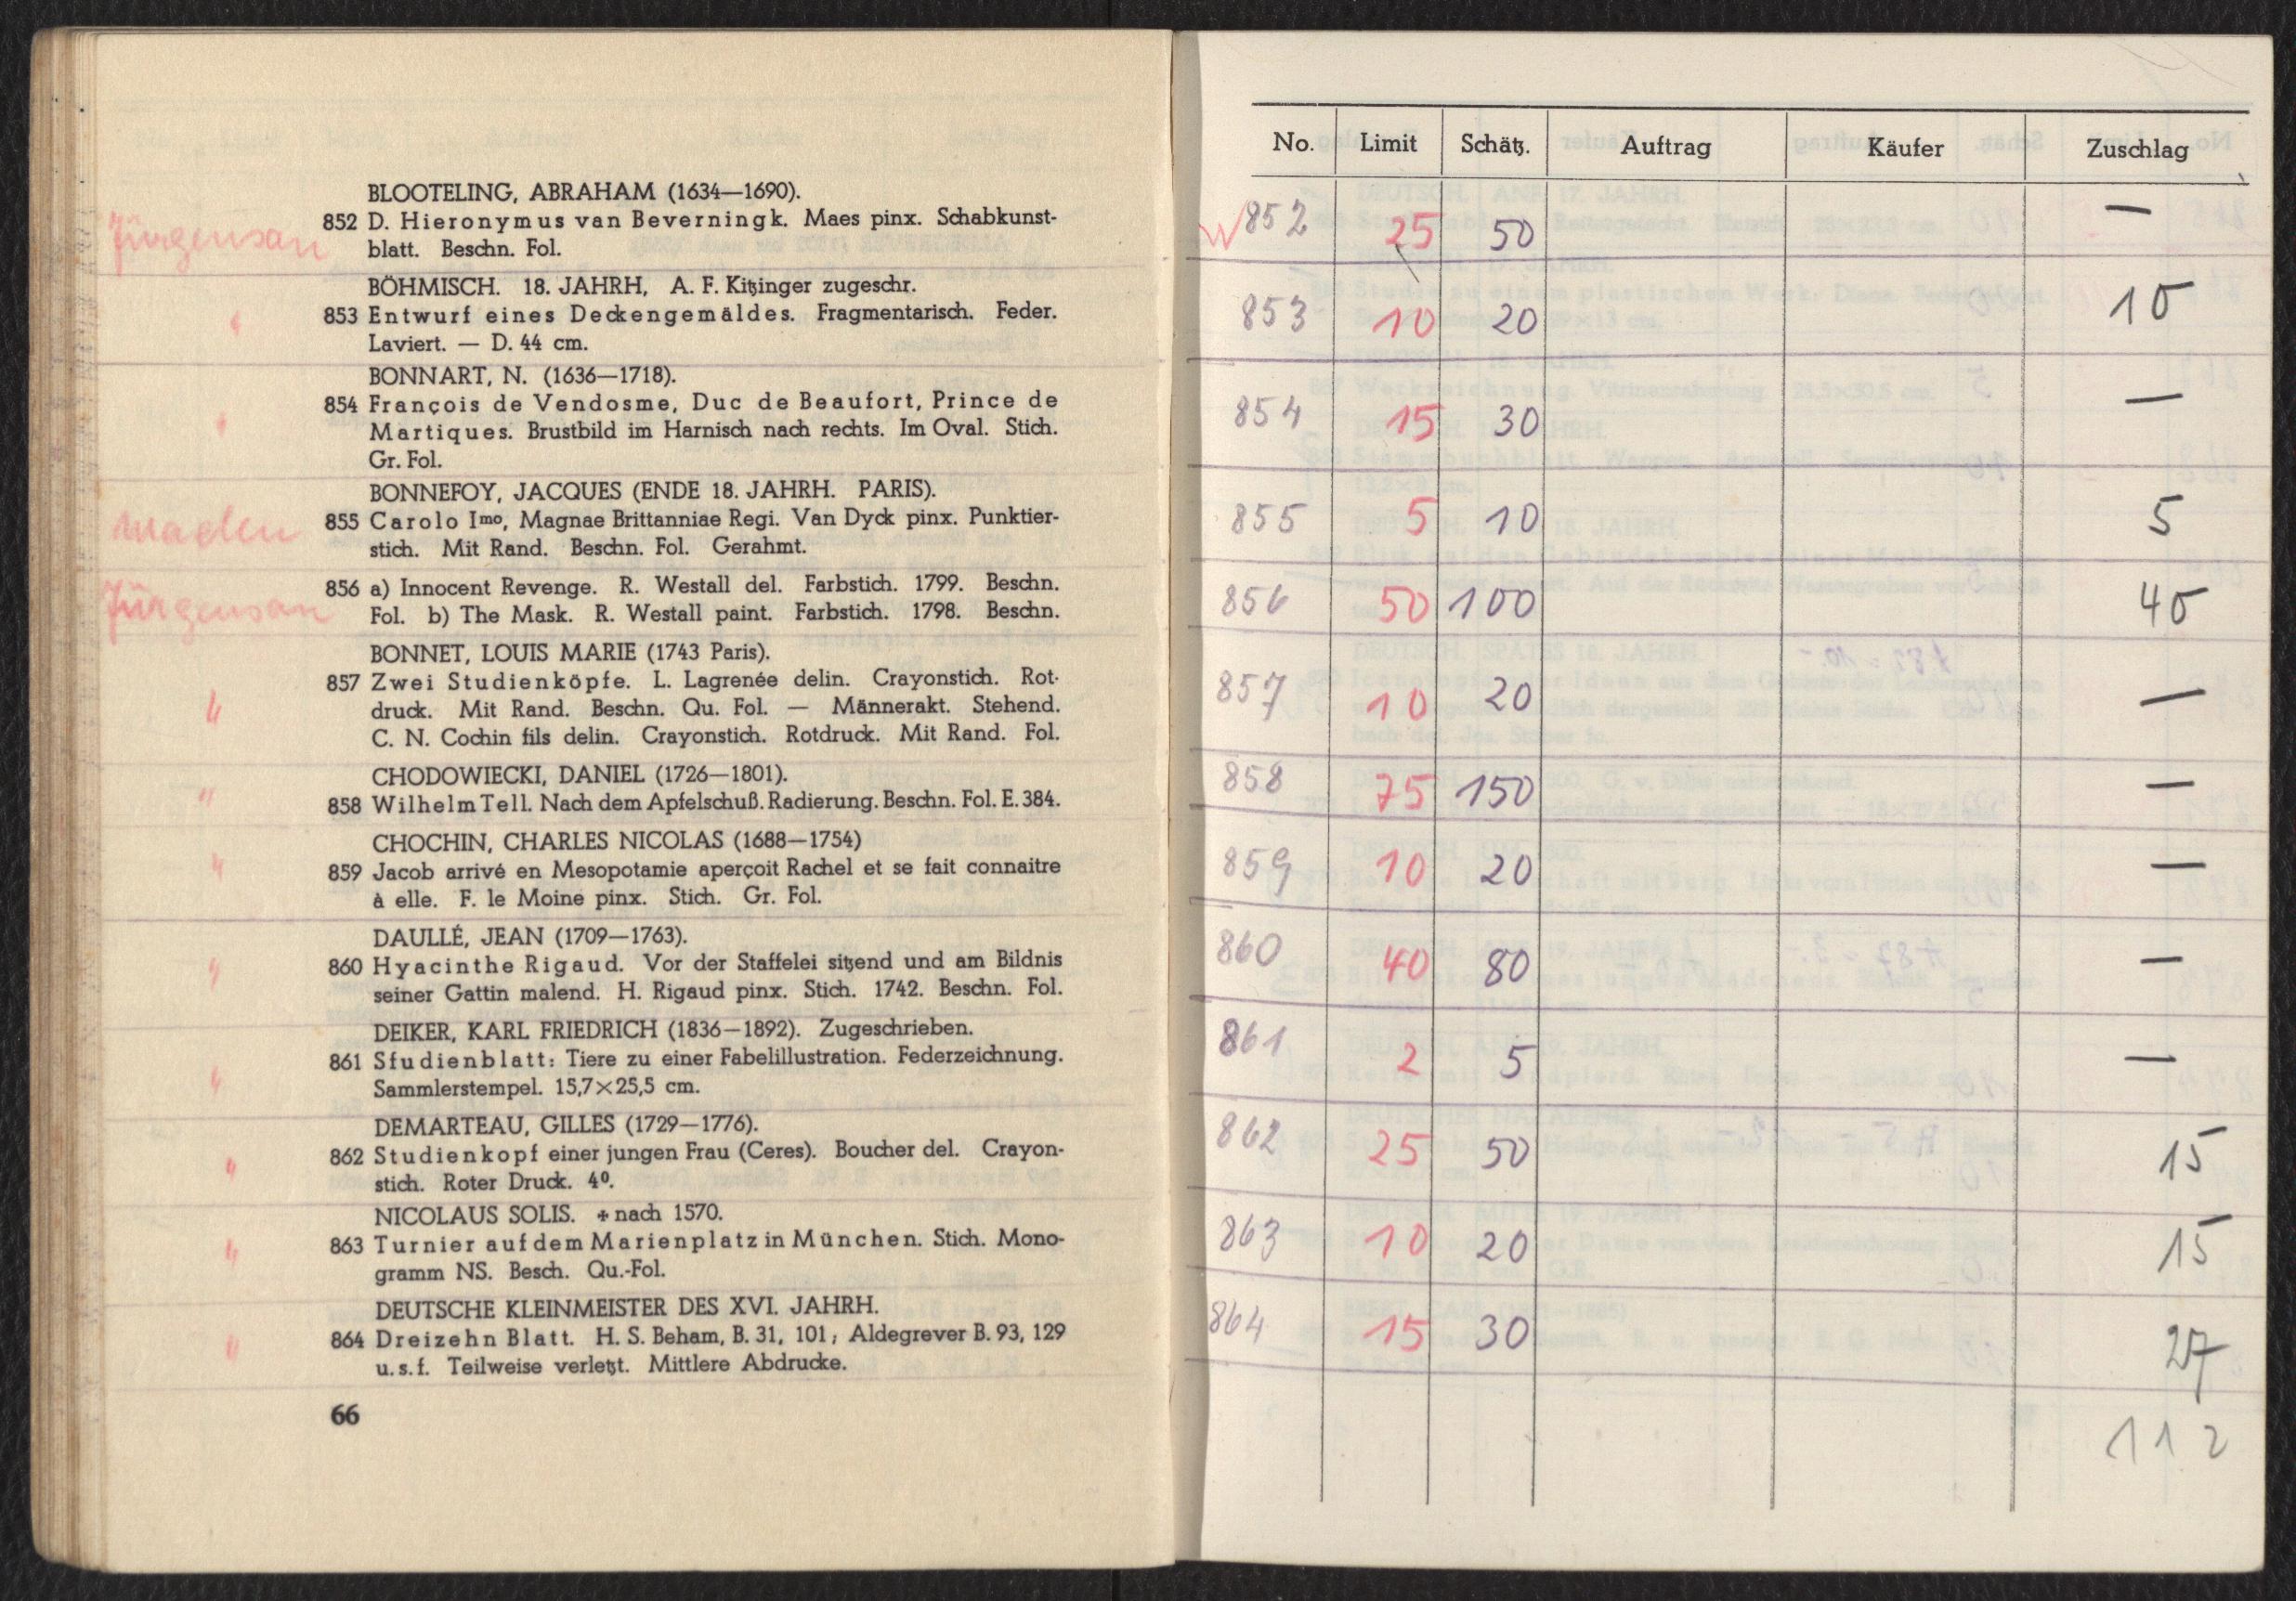 BLOOTELING, ABRAHAM (1634—1690).
Jürgensan
852 D. Hieronymus van Beverningk. Maes pinx. Schabkunst-
blatt. Beschn. Fol.
BÖHMISCH. 18. JAHRH, A. F. Kitzinger zugeschr.
" 853 Entwurf eines Deckengemäldes. Fragmentarisch. Feder.
Laviert. — D. 44 cm.
BONNART, N. (1636—1718).
" 854 François de Vendosme, Duc de Beaufort, Prince de
Martiques. Brustbild im Harnisch nach rechts. Im Oval. Stich.
Gr. Fol.
BONNEFOY, JACQUES (ENDE 18. JAHRH. PARIS).
855 Carolo Imo, Magnae Brittanniae Regi. Van Dyck pinx. Punktier-
stich. Mit Rand. Beschn. Fol. Gerahmt.
Jürgensan
856 a) Innocent Revenge. R. Westall del. Farbstich. 1799. Beschn.
Fol. b) The Mask. R. Westall paint. Farbstich. 1798. Beschn.
BONNET, LOUIS MARIE (1743 Paris).
" 857 Zwei Studienköpfe. L. Lagrenée delin. Crayonstich. Rot-
druck. Mit Rand. Beschn. Qu. Fol. — Männerakt. Stehend.
C. N. Cochin fils delin. Crayonstich. Rotdruck. Mit Rand. Fol.
CHODOWIECKI, DANIEL (1726—1801).
" 858 Wilhelm Tell. Nach dem Apfelschuß. Radierung. Beschn. Fol. E. 384.
CHOCHIN, CHARLES NICOLAS (1688—1754)
" 859 Jacob arrivé en Mesopotamie aperçoit Rachel et se fait connaitre
à elle. F. le Moine pinx. Stich. Gr. Fol.
DAULLÉ, JEAN (1709—1763).
" 860 Hyacinthe Rigaud. Vor der Staffelei sitzend und am Bildnis
seiner Gattin malend. H. Rigaud pinx. Stich. 1742. Beschn. Fol.
DEIKER, KARL FRIEDRICH (1836—1892). Zugeschrieben.
" 861 Sfudienblatt: Tiere zu einer Fabelillustration. Federzeichnung.
Sammlerstempel. 15,7×25,5 cm.
DEMARTEAU, GILLES (1729—1776).
" 862 Studienkopf einer jungen Frau (Ceres). Boucher del. Crayon-
stich. Roter Druck. 4⁰.
NICOLAUS SOLIS. + nach 1570.
" 863 Turnier auf dem Marienplatz in München. Stich. Mono-
gramm NS. Besch. Qu.-Fol.
DEUTSCHE KLEINMEISTER DES XVI. JAHRH.
" 864 Dreizehn Blatt. H. S. Beham, B. 31, 101; Aldegrever B. 93, 129
u. s. f. Teilweise verletzt. Mittlere Abdrucke.
66
No. Limit Schätz. Auftrag Käufer Zuschlag
W 852 25 50 —
853 10 20 10
854 15 30 —
855 5 10 5
856 50 100 40
857 10 20 —
858 75 150 —
859 10 20 —
860 40 80 —
861 2 5 —
862 25 50 15
863 10 20 15
864 15 30 27
112